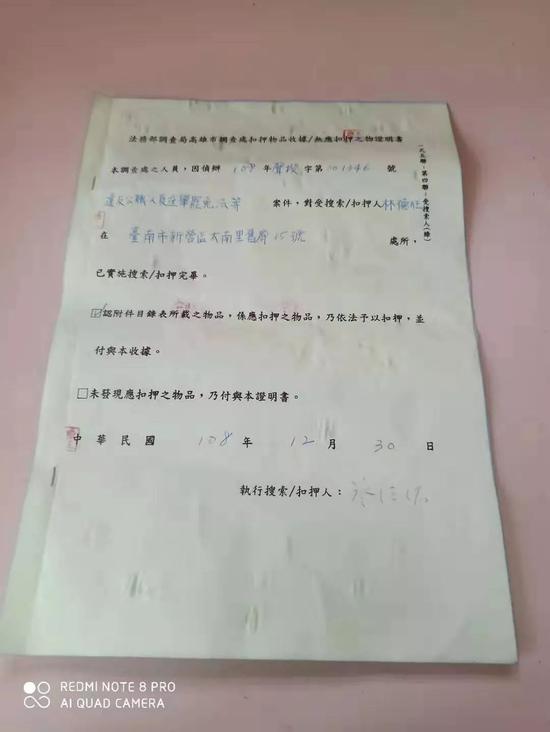 法務部調查局高雄市調查處扣押物品收據/無應扣押之物證明書
一式五聯:第四聯:受搜索人(綠)
本調查處之人員,因偵辦 108 年 聲搜 字第 001346 號
違反公職人員選舉罷免法等 案件,對受搜索/扣押人 林
在 臺南市新營區太南里舊廍 15 號 處所,
已實施搜索/扣押完畢。
☑認附件目錄表所載之物品,係應扣押之物品,乃依法予以扣押,並
付與本收據。
□未發現應扣押之物品,乃付與本證明書。
中華民國 108 年 12 月 30 日
執行搜索/扣押人:
REDMI NOTE 8 PRO
AI QUAD CAMERA